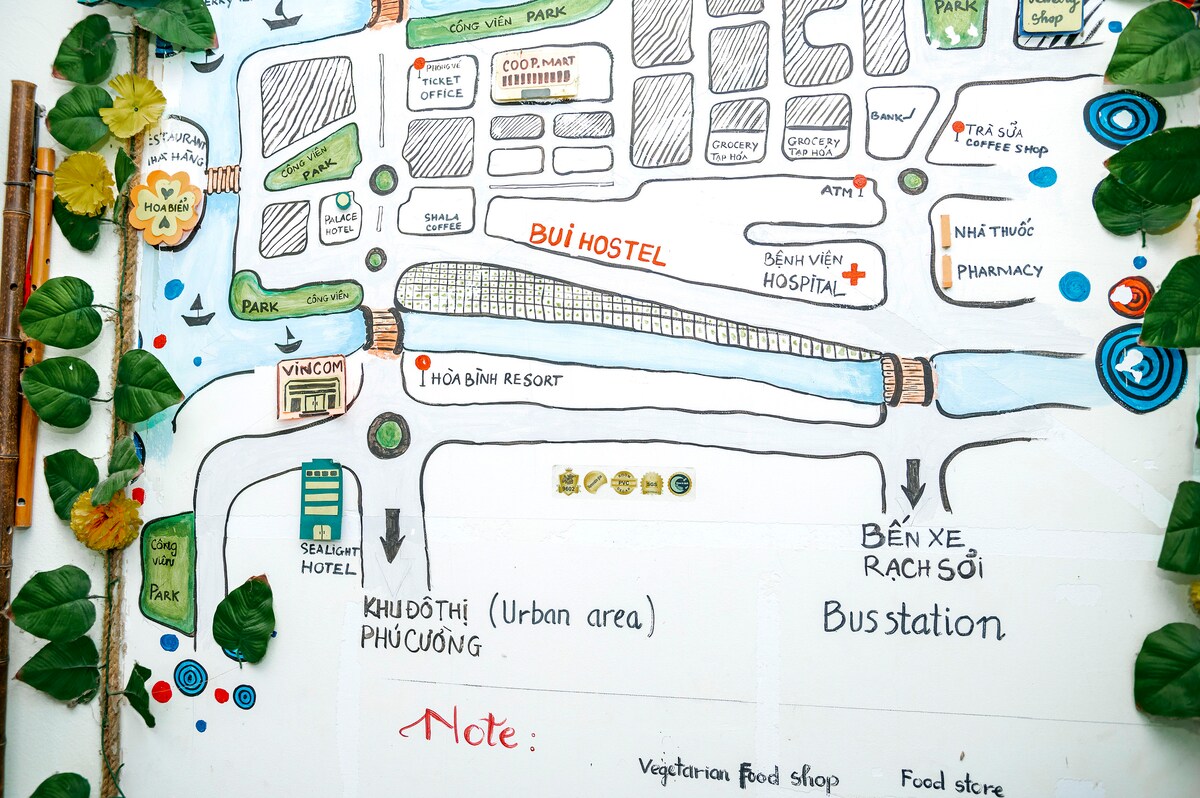 CÔNG VIÊN PARK
PARK
shop
PHÒNG VÉ
TICKET
OFFICE
COOP.MART
BANK
GROCERY
TẠP HÓA
GROCERY
TẠP HÓA
TRÀ SỮA
COFFEE SHOP
NHÀ HÀNG
HOA BIỂN
CÔNG VIÊN
PARK
PALACE
HOTEL
SHALA
COFFEE
ATM
BUI HOSTEL
BỆNH VIỆN
HOSPITAL
NHÀ THUỐC
PHARMACY
PARK CÔNG VIÊN
VINCOM
HÒA BÌNH RESORT
PVC
SEALIGHT
HOTEL
CÔNG
VIÊN
PARK
BẾN XE
RẠCH SỎI
Bus station
KHU ĐÔ THỊ (Urban area)
PHÚ CƯỜNG
Note:
Vegetarian Food shop
Food store